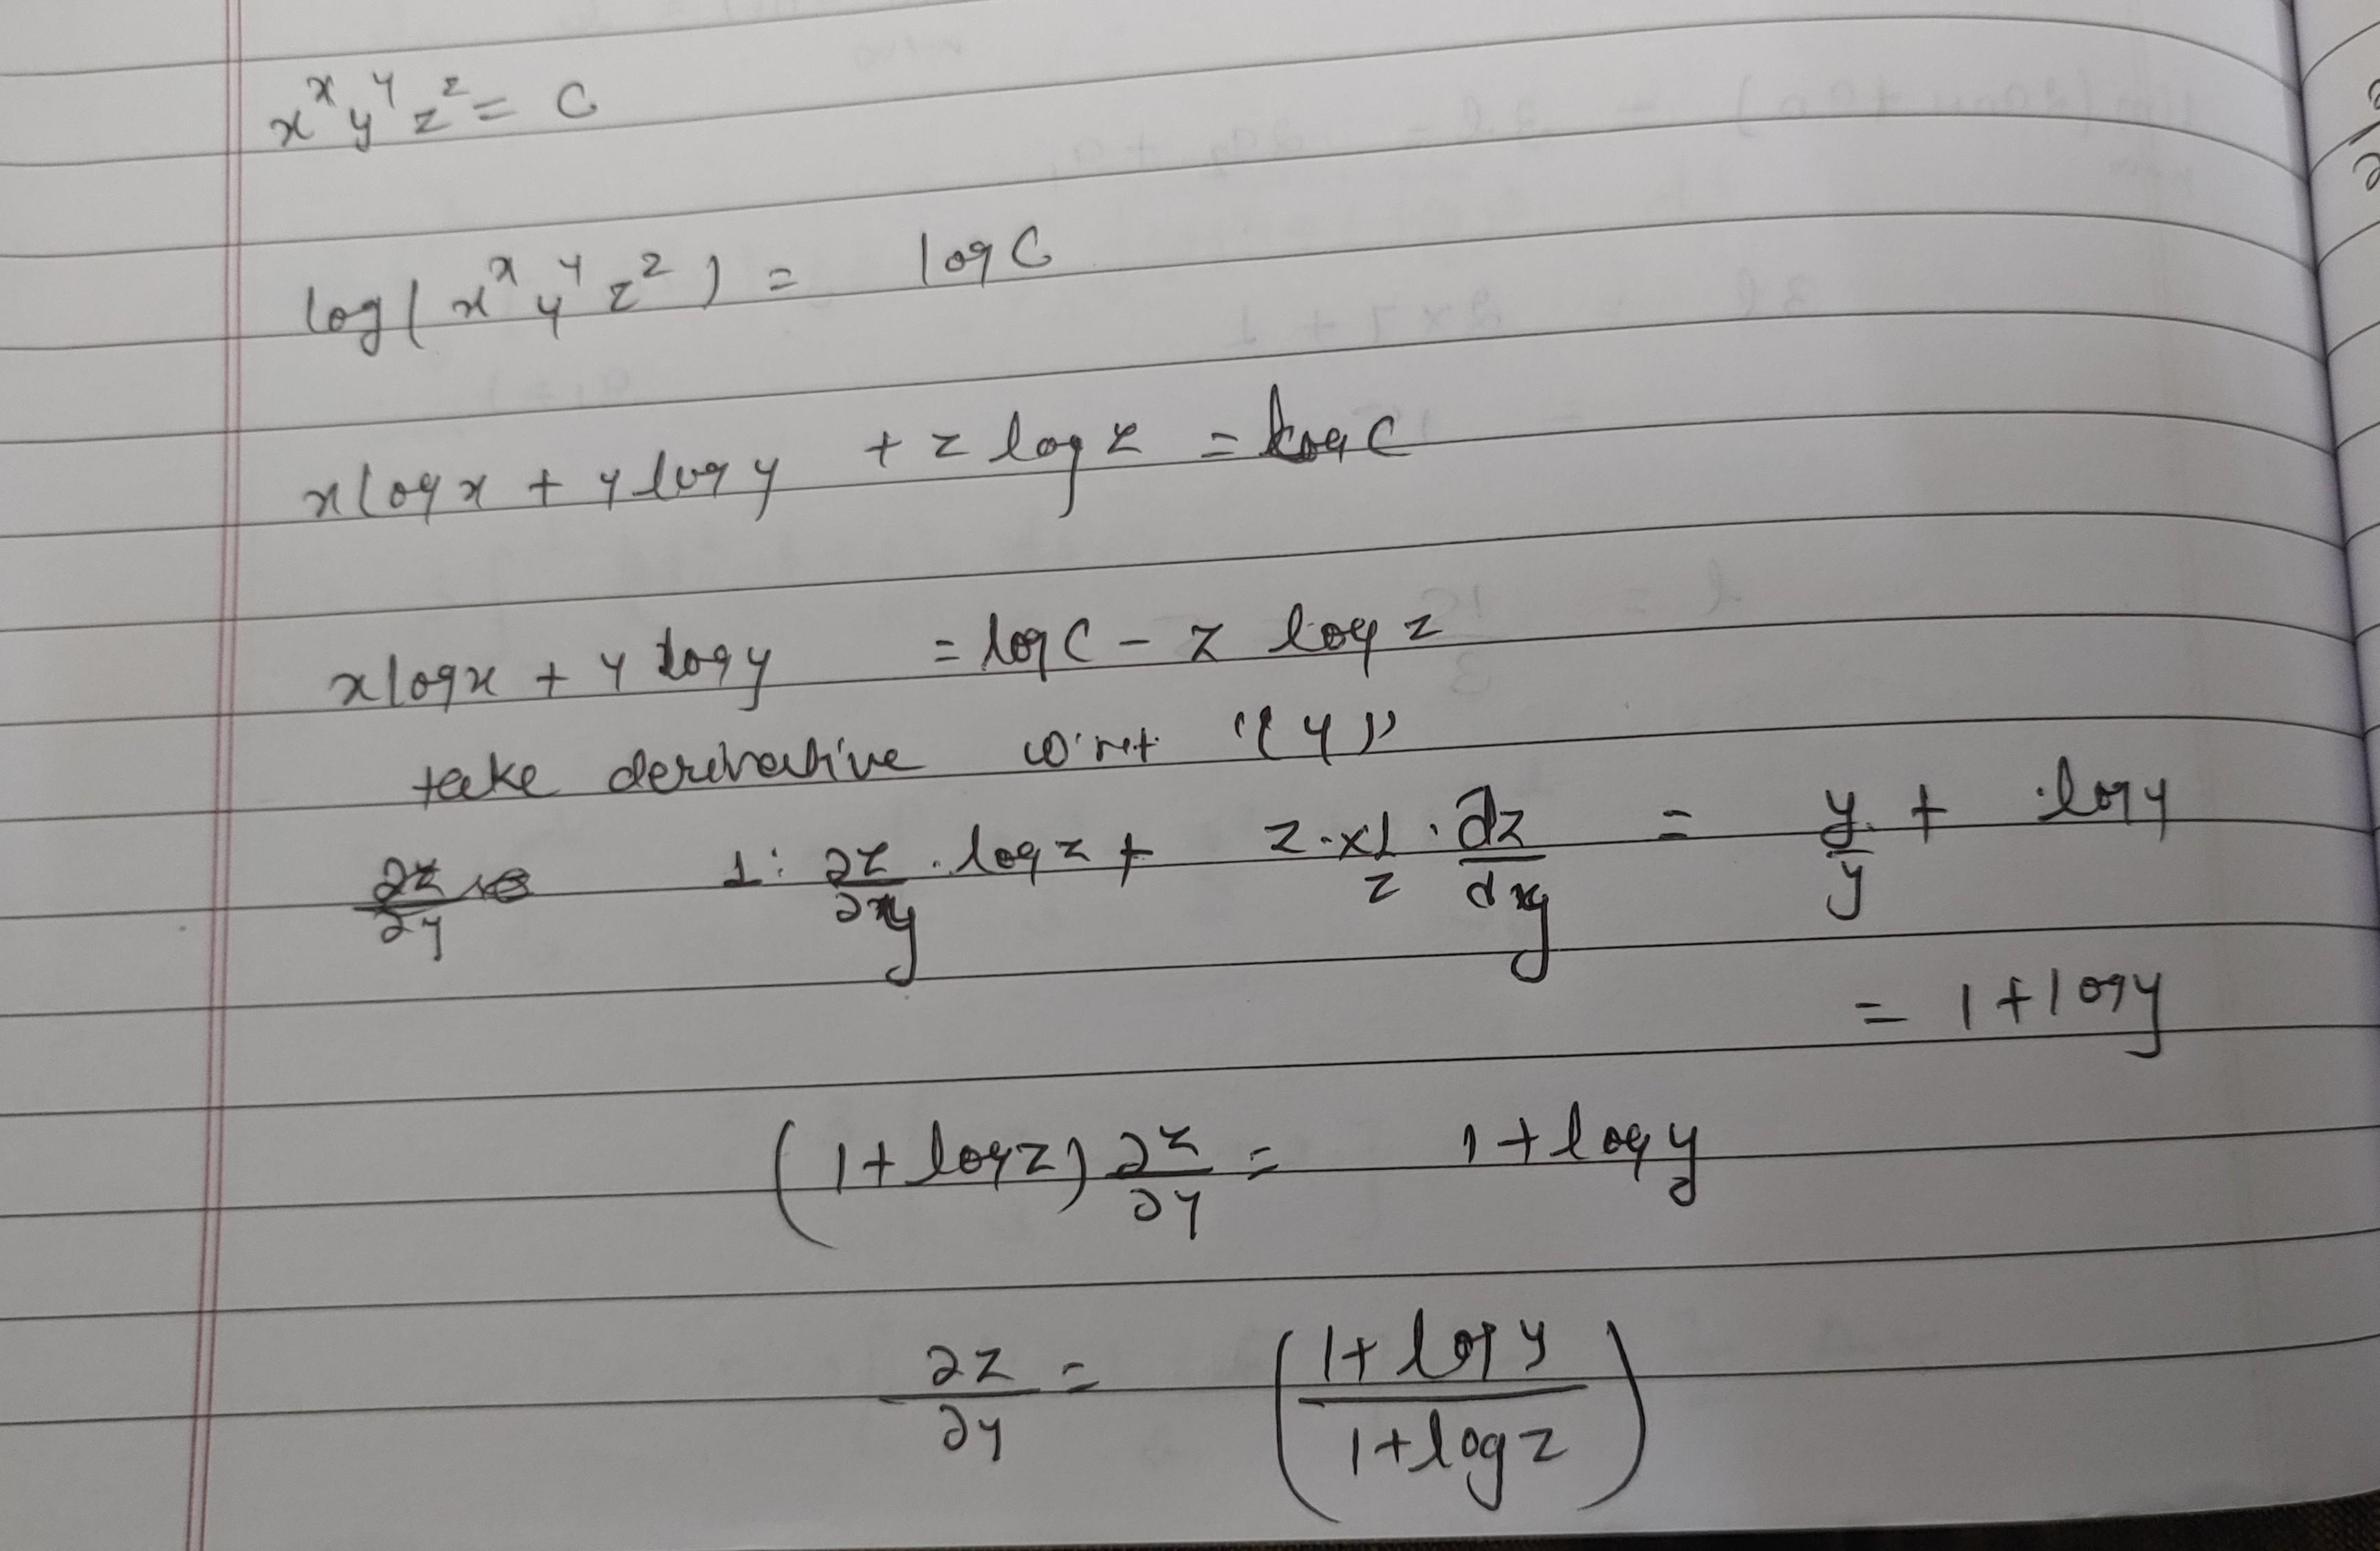 x^x y^y z^z = C
log( x^x y^y z^z ) = log C
x log x + y log y + z log z = log C
x log x + y log y = log C - z log z
take derivative w.r.t. "(y)"
1. ∂z/∂y . log z + z . x 1/z . dz/dy = y/y + . log y
= 1 + log y
(1 + log z) ∂z/∂y = 1 + log y
∂z/∂y = ( 1 + log y / 1 + log z )